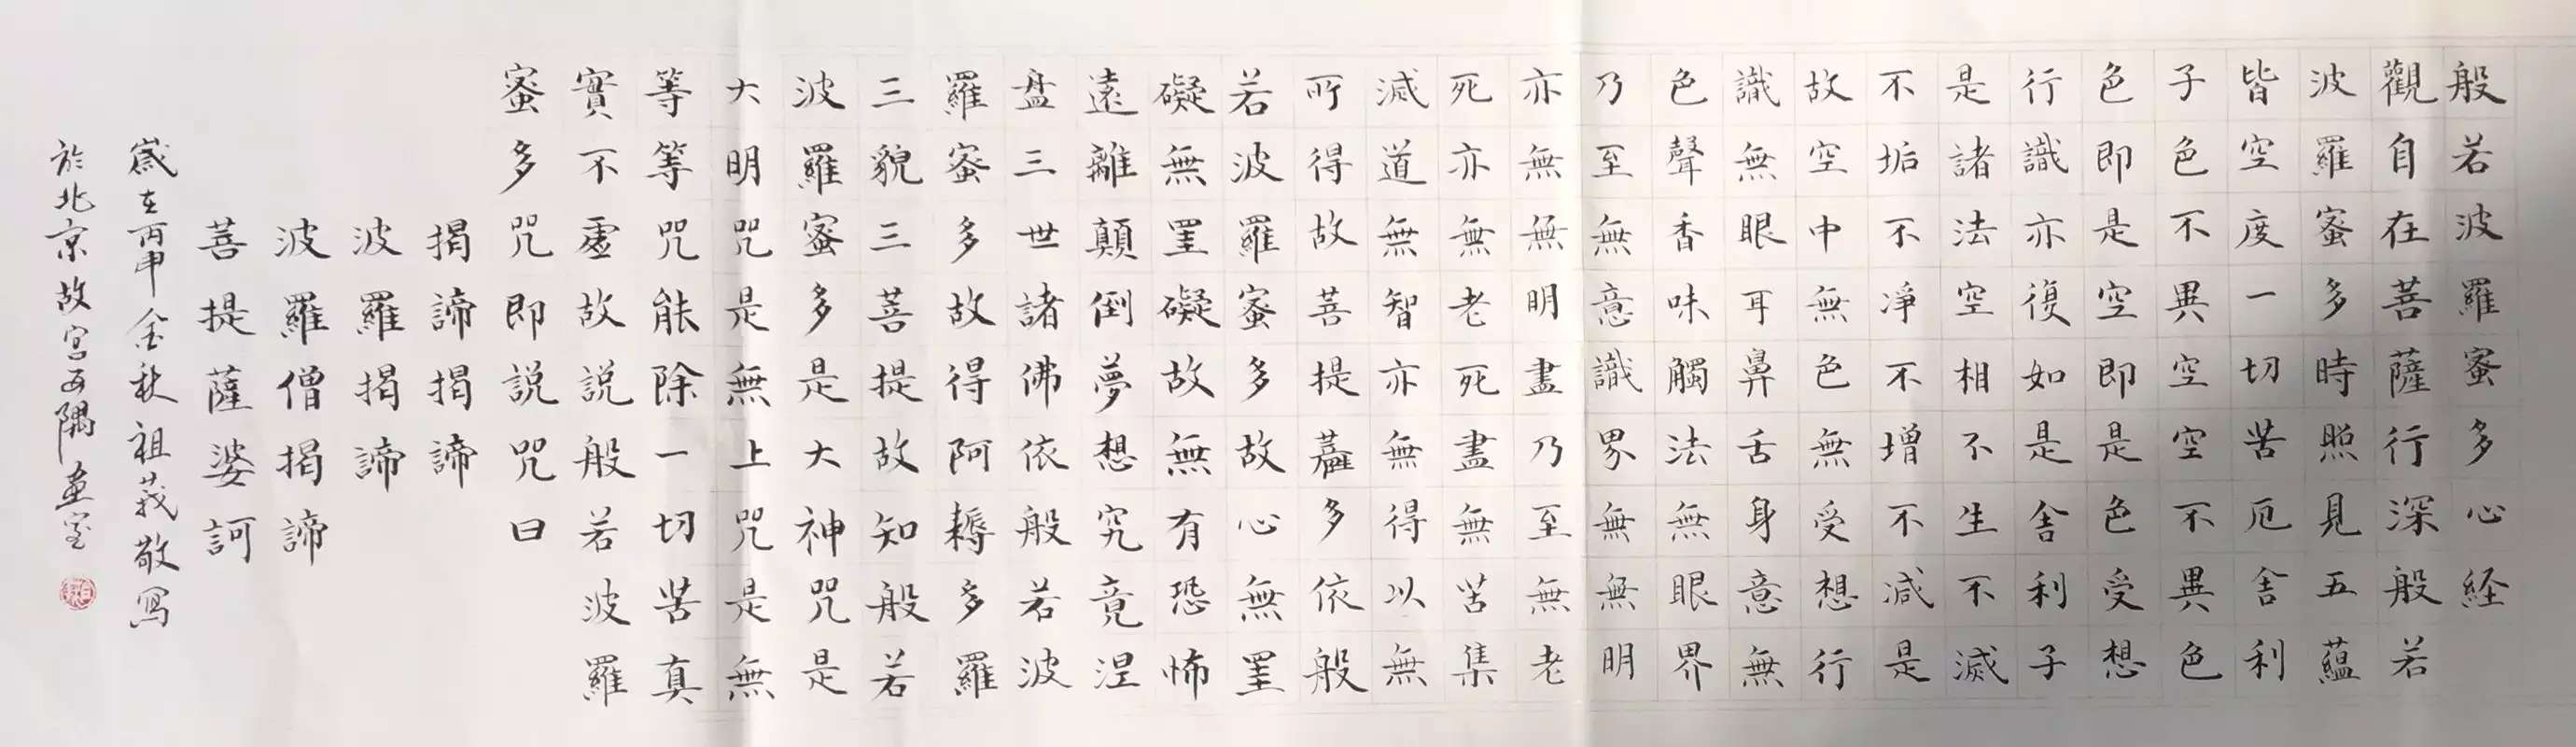 般若波羅蜜多心経
觀自在菩薩行深般若
波羅蜜多時照見五蘊
皆空度一切苦厄舍利
子色不異空空不異色
色即是空即是色受想
行識亦復如是舍利子
是諸法空相不生不滅
不垢不凈不增不減是
故空中無色無受想行
識無眼耳鼻舌身意無
色聲香味觸法無眼界
乃至無意識界無無明
亦無無明盡乃至無老
死亦無老死盡無苦集
滅道無智亦無得以無
所得故菩提薩多依般
若波羅蜜多故心無罣
礙無罣礙故無有恐怖
遠離顛倒夢想究竟涅
盘三世諸佛依般若波
羅蜜多故得阿耨多羅
三貌三菩提故知般若
波羅蜜多是大神咒是
大明咒是無上咒是無
等等咒能除一切苦真
實不虛故説般若波羅
蜜多咒即説咒曰
揭諦揭諦
波羅揭諦
波羅僧揭諦
菩提薩婆訶
歲在丙申金秋祖莪敬寫
於北京故宮西隅畫室